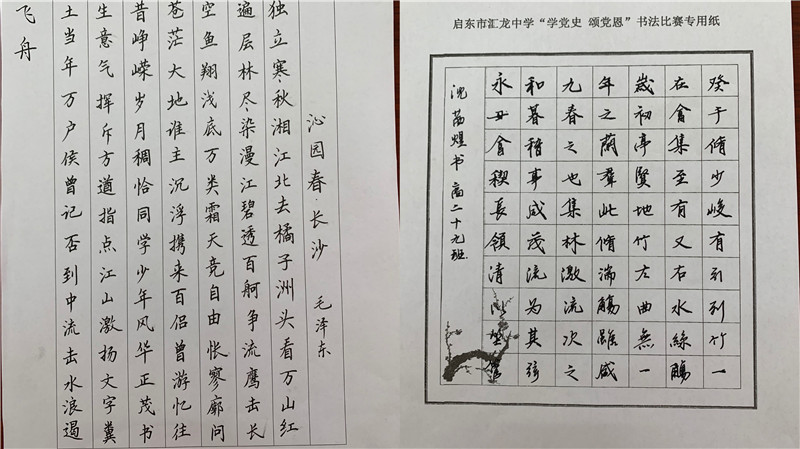 沁园春·长沙 毛泽东
独立寒秋湘江北去橘子洲头看万山红
遍层林尽染漫江碧透百舸争流鹰击长
空鱼翔浅底万类霜天竞自由怅寥廓问
苍茫大地谁主沉浮携来百侣曾游忆往
昔峥嵘岁月稠恰同学少年风华正茂书
生意气挥斥方遒指点江山激扬文字粪
土当年万户侯曾记否到中流击水浪遏
飞舟
启东市汇龙中学“学党史 颂党恩”书法比赛专用纸
癸于脩少峻有引列竹一
在會集至有又右水絲觴
歲初亭賢地竹左曲無一
年之蘭羣此脩湍觴雖咸
九春之也集林激流次之
和暮稽事咸茂流为其弦
永丑會禊長領清以坐管
沈 煜书 高二十九班